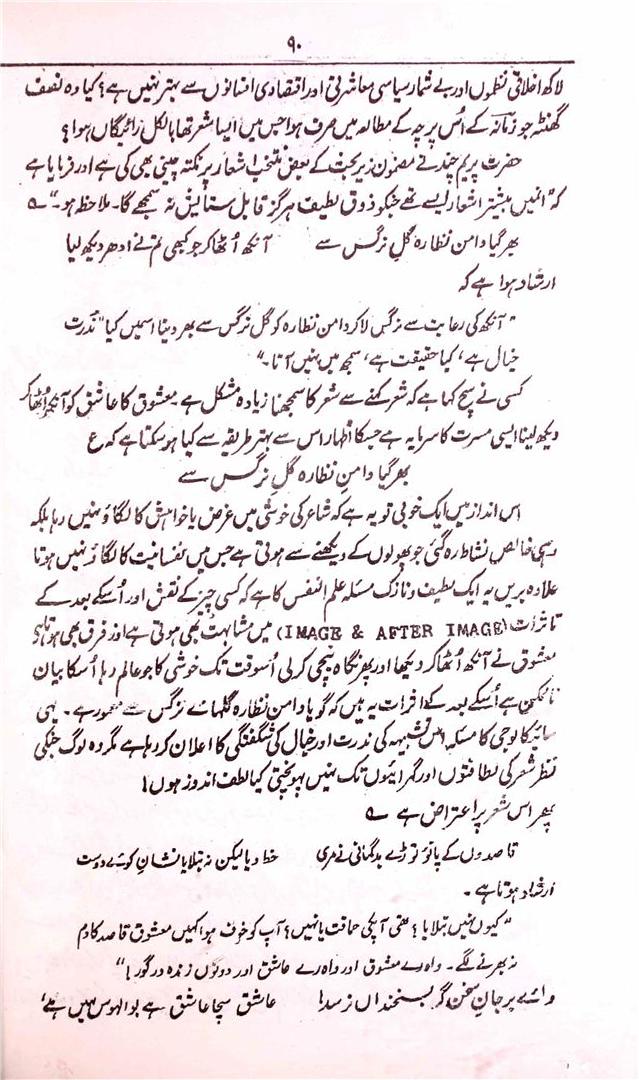 ۹۰
لاکھ اخلاقی نظموں اور بے شمار سیاسی معاشرتی اور اقتصادی افسانوں سے بہتر نہیں ہے؟ کیا وہ نصف
گھنٹہ جو زمانہ کے اُس پرچہ کے مطالعہ میں صرف ہوا جس میں ایسا شعر تھا بالکل رائیگاں ہوا؟
حضرت پریم چند نے مضمون زیر بحث کے بعض منتخب اشعار پر نکتہ چینی بھی کی ہے اور فرمایا ہے
کہ "انمیں بیشتر اشعار ایسے تھے جنکو ذوق لطیف ہرگز قابل ستایش نہ سمجھے گا۔ ملاحظہ ہو۔"
بھر گیا دامن نظارہ گلِ نرگس سے آنکھ اُٹھا کر جو کبھی تم نے ادھر دیکھ لیا
ارشاد ہوا ہے کہ
"آنکھ کی رعایت سے نرگس لا کر دامن نظارہ کو گل نرگس سے بھر دینا اسمیں کیا "ندرت
خیال ہے، کیا حقیقت ہے، سمجھ میں نہیں آتا۔"
کسی نے سچ کہا ہے کہ شعر کہنے سے شعر کا سمجھنا زیادہ مشکل ہے۔ معشوق کا عاشق کو آنکھ اُٹھا کر
دیکھ لینا ایسی مسرت کا سرمایہ ہے جسکا اظہار اس سے بہتر طریقہ سے کیا ہو سکتا ہے کہ ع
بھر گیا دامنِ نظارہ گلِ نرگس سے
اس انداز میں ایک خوبی تو یہ ہے کہ شاعر کی خوشی میں غرض یا خواہش کا لگاؤ نہیں رہا بلکہ
وہی خالص نشاط رہ گئی جو پھولوں کے دیکھنے سے ہوتی ہے جس میں نفسانیت کا لگاؤ نہیں ہوتا
علاوہ بریں یہ ایک لطیف و نازک مسئلہ علم النفس کا ہے کہ کسی چیز کے نقش اور اُسکے بعد کے
تاثرات (IMAGE & AFTER IMAGE) میں مشابہت بھی ہوتی ہے اور فرق بھی ہوتا ہے
معشوق نے آنکھ اُٹھا کر دیکھا اور پھر نگاہ نیچی کر لی اُسوقت تک خوشی کا جو عالم رہا اُسکا بیان
ناممکن ہے اُسکے بعد کے اثرات یہ ہیں کہ گویا دامن نظارہ گلہائے نرگس سے معمور ہے۔ یہی
سائیکالوجی کا مسئلہ اس تشبیہہ کی ندرت اور خیال کی شگفتگی کا اعلان کر رہا ہے مگر وہ لوگ جنکی
نظر شعر کی لطافتوں اور گہرائیوں تک نہیں پہونچتی کیا لطف اندوز ہوں!
پھر اس شعر پر اعتراض ہے
قاصدوں کے پانوٴ توڑے بدگمانی نے مری خط دیا لیکن نہ بتلایا نشانِ کوئے دوست
ارشاد ہوتا ہے۔
"کیوں نہیں بتلایا؟ تھی آپکی حماقت یا نہیں؟ آپ کو خوف ہوا کہیں معشوق قاصد کا دم
نہ بھرنے لگے۔ واہ رے معشوق اور واہ رے عاشق اور دونوں زندہ در گور!"
وائے بر جانِ سخن گر بسخنداں نرسد! عاشق سچا عاشق ہے بوالہوس نہیں ہے،